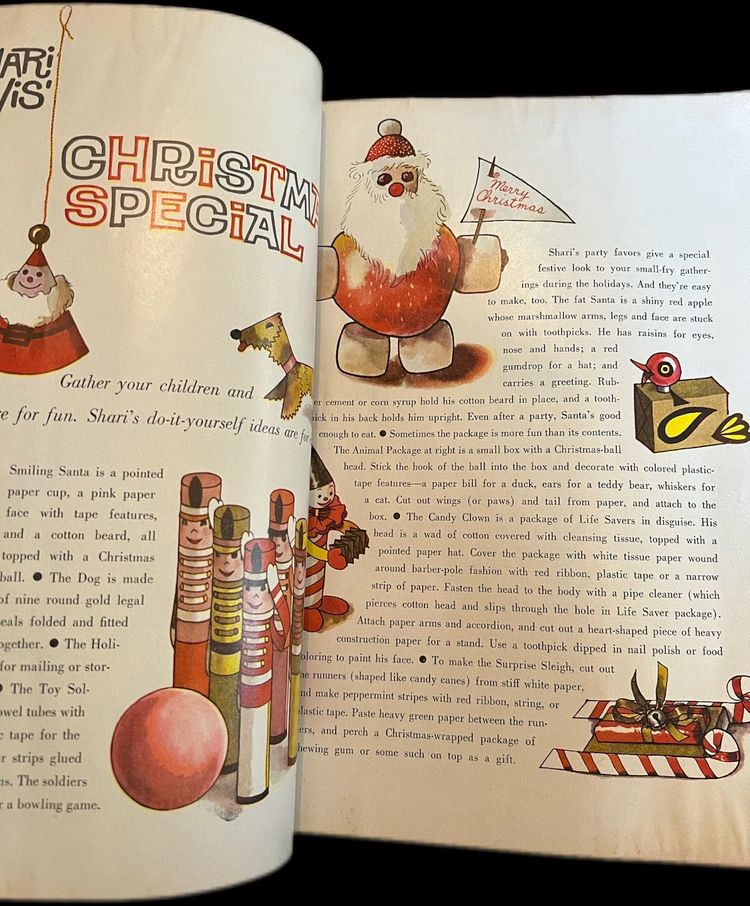 ARI
WIS'
CHRISTMA
SPECIAL
Gather your children and
e for fun. Shari's do-it-yourself ideas are for
Smiling Santa is a pointed
paper cup, a pink paper
face with tape features,
and a cotton beard, all
topped with a Christmas
ball. ● The Dog is made
of nine round gold legal
eals folded and fitted
ogether. ● The Holi-
for mailing or stor-
● The Toy Sol-
owel tubes with
c tape for the
r strips glued
ns. The soldiers
r a bowling game.
Merry
Christmas
Shari's party favors give a special
festive look to your small-fry gather-
ings during the holidays. And they're easy
to make, too. The fat Santa is a shiny red apple
whose marshmallow arms, legs and face are stuck
on with toothpicks. He has raisins for eyes,
nose and hands; a red
gumdrop for a hat; and
carries a greeting. Rub-
er cement or corn syrup hold his cotton beard in place, and a tooth-
ick in his back holds him upright. Even after a party, Santa's good
enough to eat. ● Sometimes the package is more fun than its contents.
The Animal Package at right is a small box with a Christmas-ball
head. Stick the hook of the ball into the box and decorate with colored plastic-
tape features—a paper bill for a duck, ears for a teddy bear, whiskers for
a cat. Cut out wings (or paws) and tail from paper, and attach to the
box. ● The Candy Clown is a package of Life Savers in disguise. His
head is a wad of cotton covered with cleansing tissue, topped with a
pointed paper hat. Cover the package with white tissue paper wound
around barber-pole fashion with red ribbon, plastic tape or a narrow
strip of paper. Fasten the head to the body with a pipe cleaner (which
pierces cotton head and slips through the hole in Life Saver package).
Attach paper arms and accordion, and cut out a heart-shaped piece of heavy
construction paper for a stand. Use a toothpick dipped in nail polish or food
loring to paint his face. ● To make the Surprise Sleigh, cut out
he runners (shaped like candy canes) from stiff white paper,
nd make peppermint stripes with red ribbon, string, or
lastic tape. Paste heavy green paper between the run-
ers, and perch a Christmas-wrapped package of
hewing gum or some such on top as a gift.